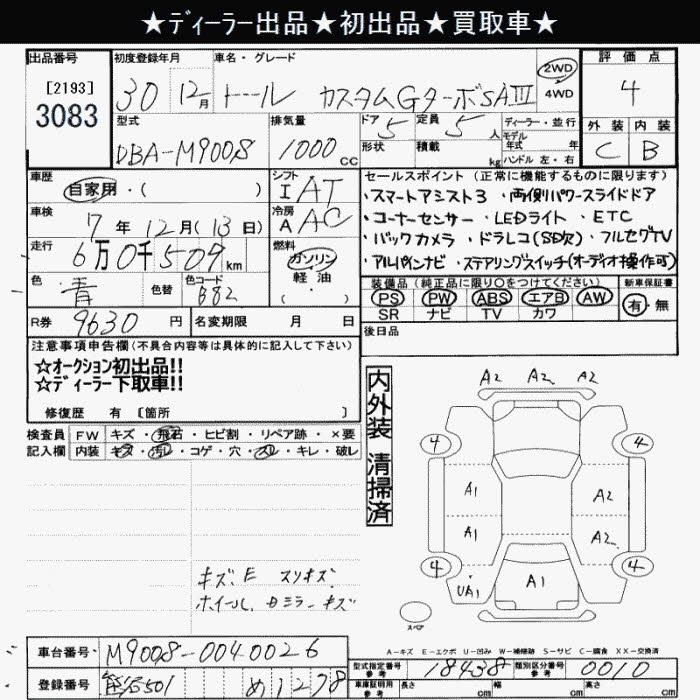 ★ディーラー出品★初出品★買取車★
出品番号 初度登録年月 車名・グレード 2WD 4WD 評価点
[2193]
3083
30 12月 トール カスタムGターボSAⅢ 4
型式 排気量 ドア 定員 ディーラー・並行 外装 内装
DBA-M900S 1000cc 5 5人 モデル年式 年 C B
形状 積載 kg ハンドル 左・右
車歴 シフト セールスポイント (正常に機能するものに限ります)
自家用・( ) I AT ・スマートアシスト3 ・両側パワースライドドア
車検 冷房 ・コーナーセンサー ・LEDライト ・ETC
7年12月(13日) A AC ・バックカメラ ・ドラレコ(SD欠) ・フルセグTV
走行 燃料 ・アルパインナビ ・ステアリングスイッチ(オーディオ操作可)
6万0千509km ガソリン
色 色替 色コード 軽油 装備品 (純正品に限り○をつけてください) 新車保証書
青 B82 ( ・ ) PS PW ABS エアB AW 有・無
SR ナビ TV カワ
R券 9630円 名変期限 月 日 後日品
注意事項申告欄(不具合内容等は具体的に記入して下さい)
☆オークション初出品!!
☆ディーラー下取車!!
修復歴 有 [箇所 ]
検査員 FW キズ・飛石・ヒビ割・リペア跡・×要
記入欄 内装 キズ・汚レ・コゲ・穴・スレ・キレ・破レ
内外装 清掃済
A2 A2 A2
4 4
A1 A2
A1 A2
4 4
UA1 A1
スペア
キズ、E スリキズ
ホイール、ドミラーキズ
A-キズ E-エクボ U-凹み W-補修跡 S-サビ C-腐食 XX-交換済
車台番号 M900S-0040026
型式指定番号 参考 18438 類別区分番号 参考 0010
登録番号 501 め1278
車庫証明用 参考 長さ cm 幅 cm 高さ cm